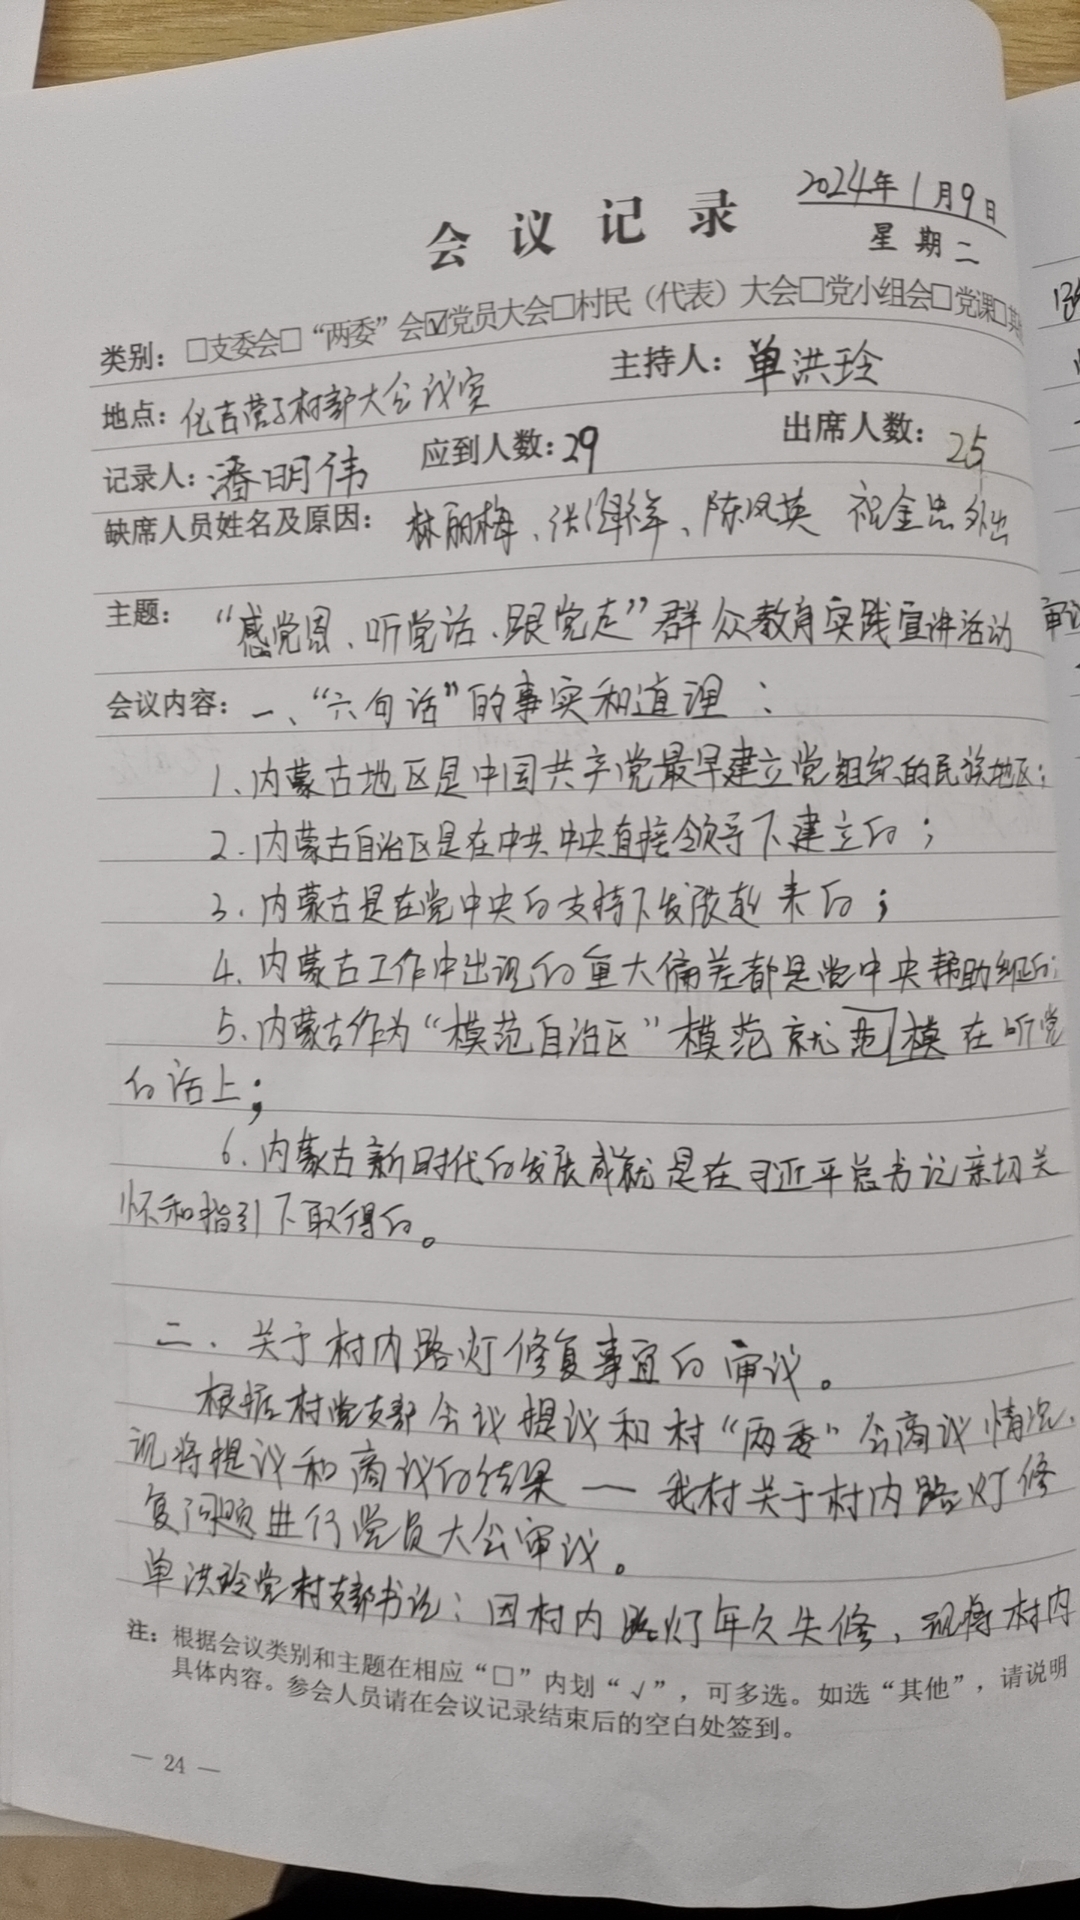 2024年1月9日
会议记录
星期二
类别：□支委会□“两委”会☑党员大会□村民（代表）大会□党小组会□党课□其
地点：化吉营子村部大会议室 主持人：单洪玲
记录人：潘明伟 应到人数：29 出席人数：25
缺席人员姓名及原因：林丽梅、洪祥、陈凤英 祝金忠外出
主题：“感党恩、听党话、跟党走”群众教育实践宣讲活动
会议内容：一、“六句话”的事实和道理：
1、内蒙古地区是中国共产党最早建立党组织的民族地区；
2、内蒙古自治区是在中共中央直接领导下建立的；
3、内蒙古是在党中央的支持下发展起来的；
4、内蒙古工作中出现的重大偏差都是党中央帮助纠正的；
5、内蒙古作为“模范自治区”模范就范模在听党
的话上；
6、内蒙古新时代的发展成就是在习近平总书记亲切关
怀和指引下取得的。
二、关于村内路灯修复事宜的审议。
根据村党支部会议提议和村“两委”会商议情况，
现将提议和商议的结果——我村关于村内路灯修
复问题进行党员大会审议。
单洪玲党村支部书记：因村内路灯年久失修，现将村内
注：根据会议类别和主题在相应“□”内划“√”，可多选。如选“其他”，请说明
具体内容。参会人员请在会议记录结束后的空白处签到。
— 24 —